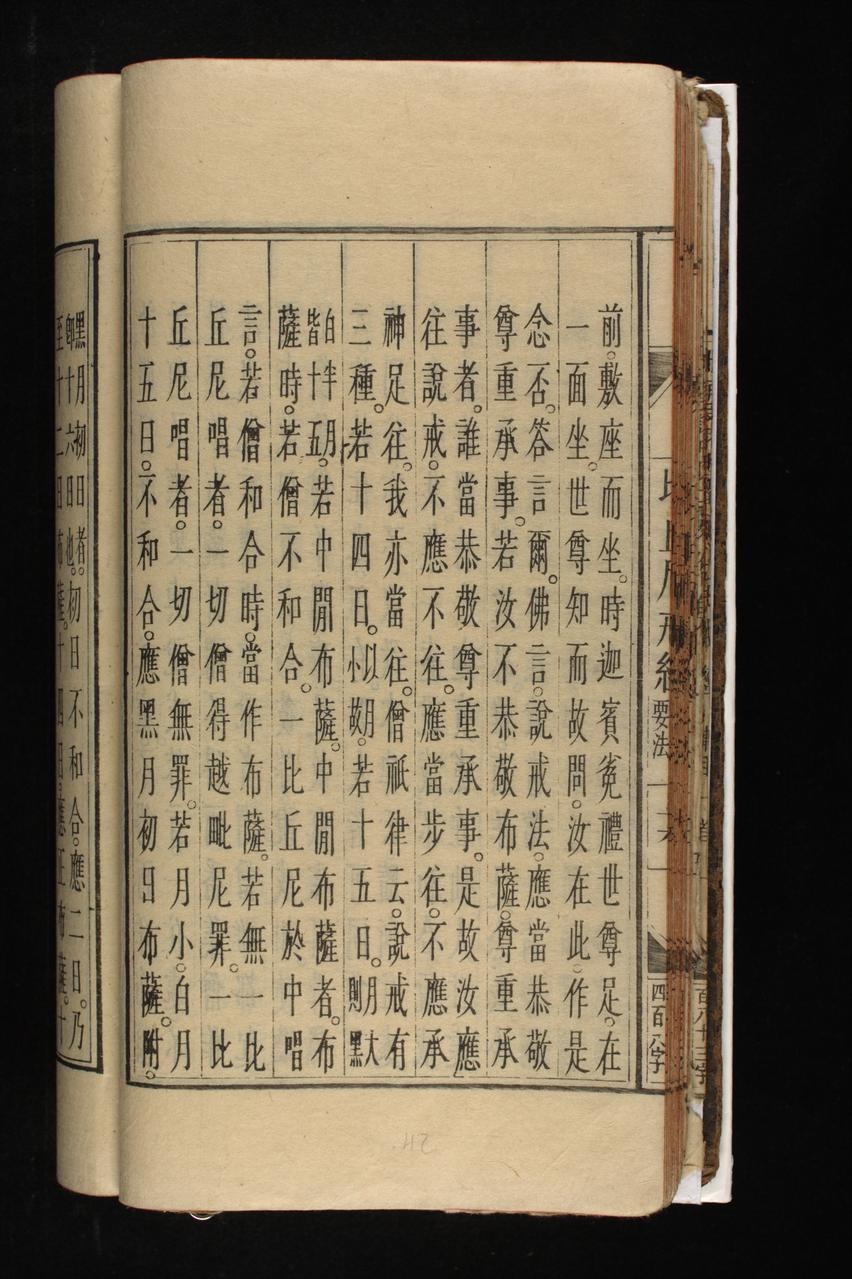 前。敷座而坐。時迦賓㝹禮世尊足。在
一面坐。世尊知而故問。汝在此。作是
念否。答言爾。佛言。說戒法。應當恭敬
尊重承事。若汝不恭敬布薩。尊重承
事者。誰當恭敬尊重承事。是故汝應
往說戒。不應不往。應當步往。不應承
神足往。我亦當往。僧祇律云。說戒有
三種。若十四日。以月小故。若十五日。月大則黑
白半月。皆十五。若中閒布薩。中閒布薩者。布
薩時。若僧不和合。一比丘尼於中唱
言。若僧和合時。當作布薩。若無一比
丘尼唱者。一切僧得越毗尼罪。一比
丘尼唱者。一切僧無罪。若月小。白月
十五日。不和合。應黑月初日布薩。附。
黑月初日者。即十六日也。初日不和合。應二日。乃
至十二日布薩。十四日。應正布薩。十
要法
四百六字